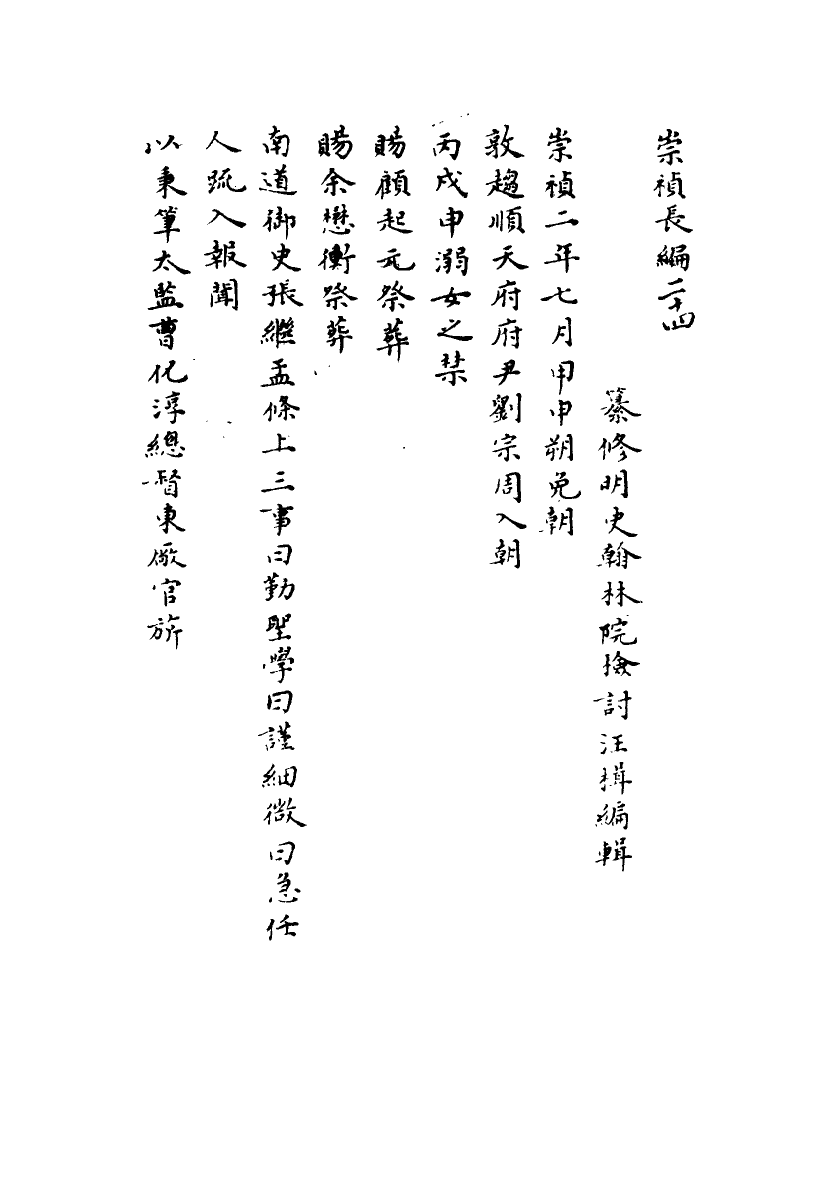 崇禎長編二十四
纂修明史翰林院撿討汪楫編輯
崇禎二年七月甲申朔免朝
敦趨順天府府尹劉宗周入朝
丙戌申溺女之禁
賜顧起元祭葬
賜余懋衡祭葬
南道御史張繼孟條上三事曰勤聖學曰謹細微曰急任
人疏入報聞
以秉筆太監曹化淳總督東廠官旂